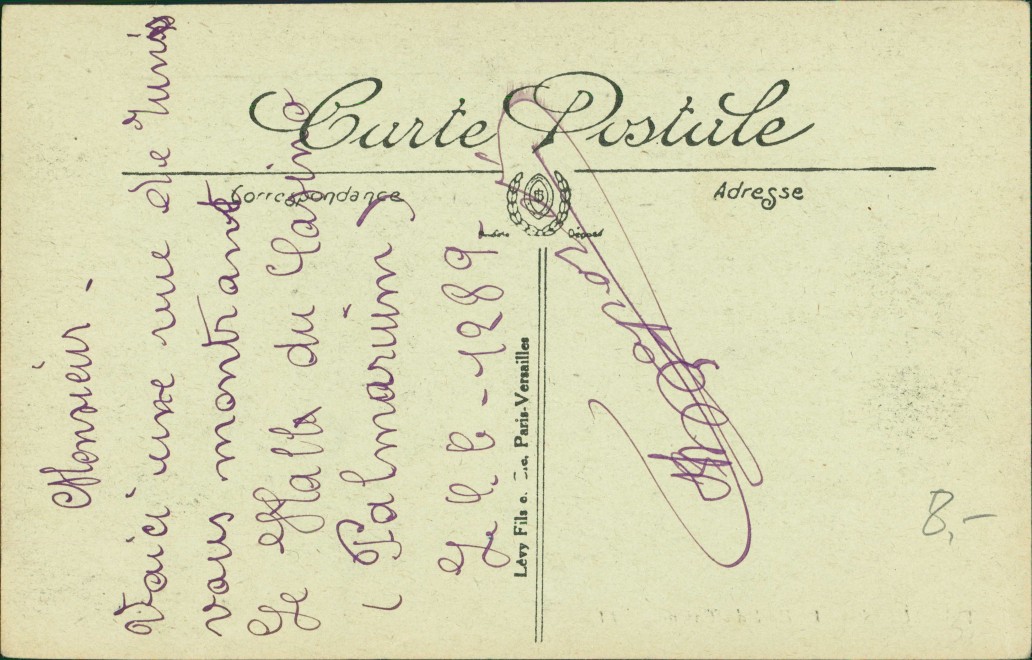 Carte Postale
Correspondance
Adresse
Lévy Fils e. Cie, Paris-Versailles
Monsieur -
Voici une vue de Tunis
vous montrant
Le Halle du Casino
( Palmarium )
- 1289
8,-